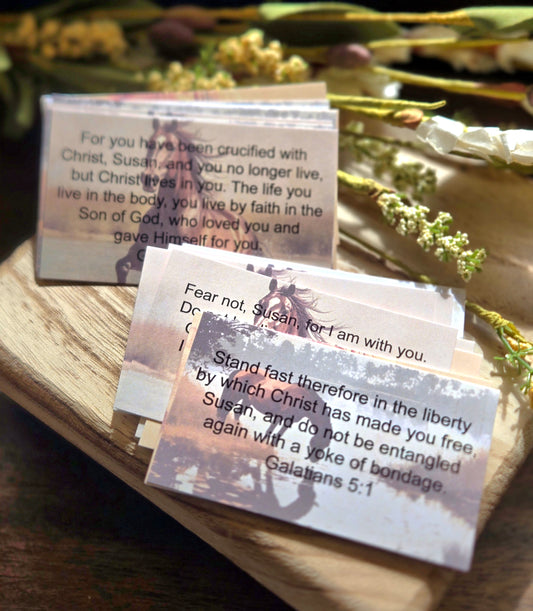 For you have been crucified with
Christ, Susan, and you no longer live,
but Christ lives in you. The life you
live in the body, you live by faith in the
Son of God, who loved you and
gave Himself for you.
Fear not, Susan, for I am with you.
Stand fast therefore in the liberty
by which Christ has made you free,
Susan, and do not be entangled
again with a yoke of bondage.
Galatians 5:1